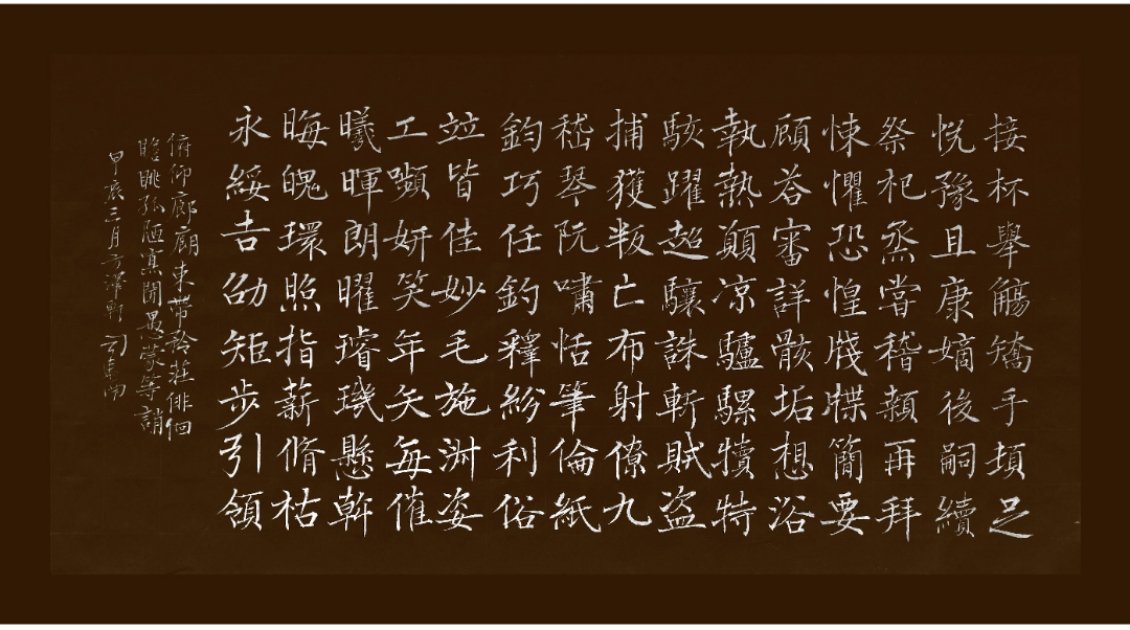 接杯舉觴矯手頓足
悅豫且康嫡後嗣續
祭祀烝嘗稽顙再拜
悚懼恐惶牋牒簡要
顧答審詳骸垢想浴
執熱願凉驢騾犢特
駭躍超驤誅斬賊盜
捕獲叛亡布射僚九
嵇琴阮嘯恬筆倫紙
鈞巧任釣釋紛利俗
竝皆佳妙毛施淑姿
工嚬妍笑年矢每催
曦暉朗曜璿璣懸斡
晦魄環照指薪脩祜
永綏吉劭矩步引領
俯仰廊廟束帶矜莊俳佪
瞻眺孤陋寡聞愚蒙等誚
甲辰三月